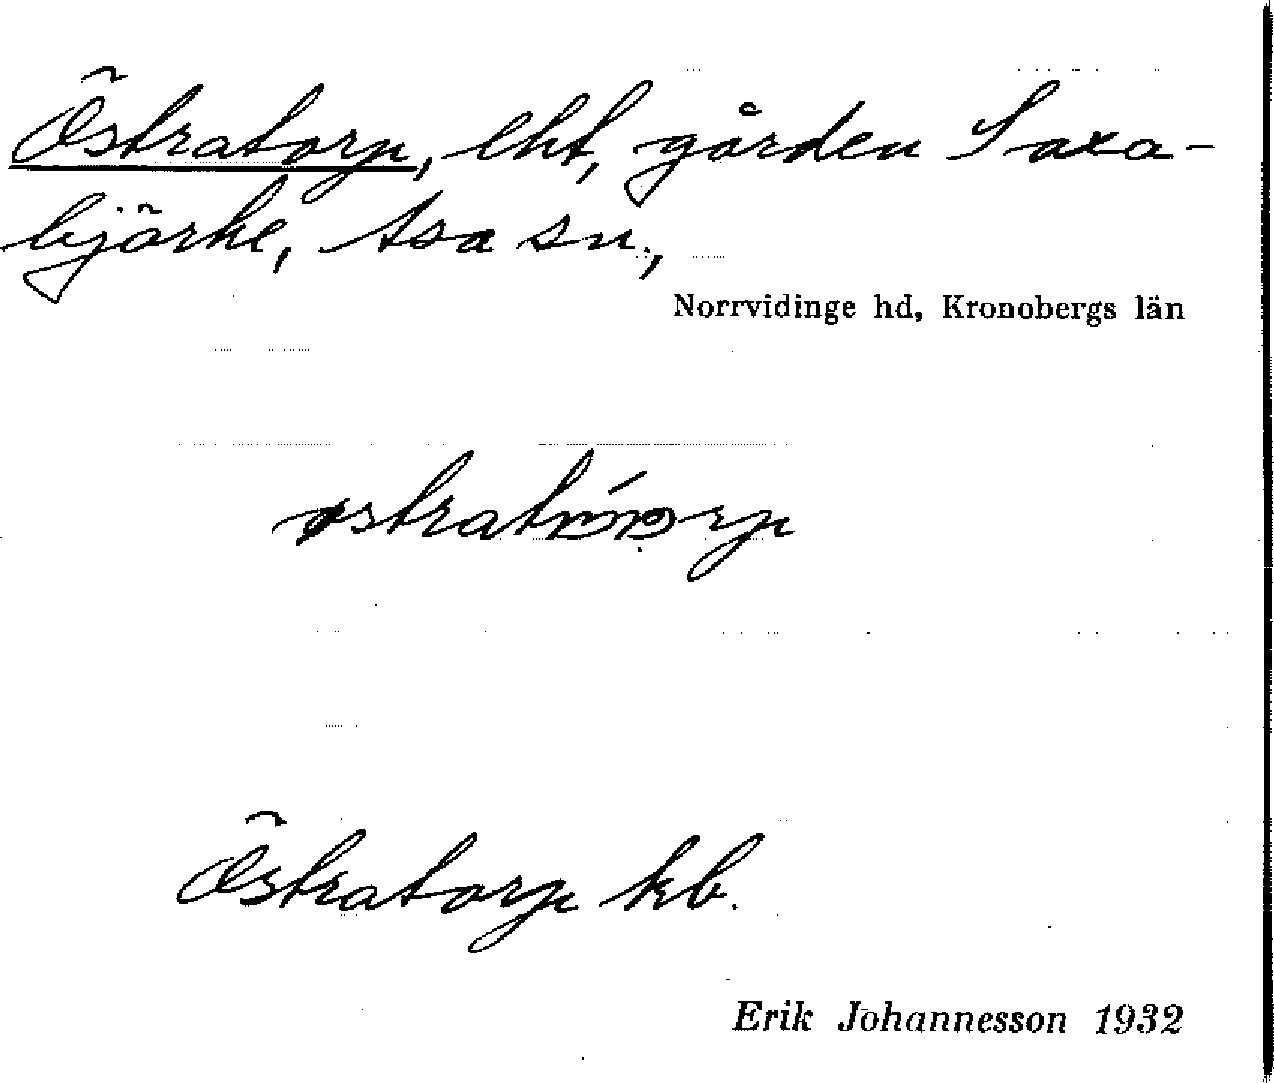 Östratorp, lht, gården Saxa-
bjärke, Asa sn.,
Norrvidinge hd, Kronobergs län
Östratorp kb.
Erik Johannesson 1932